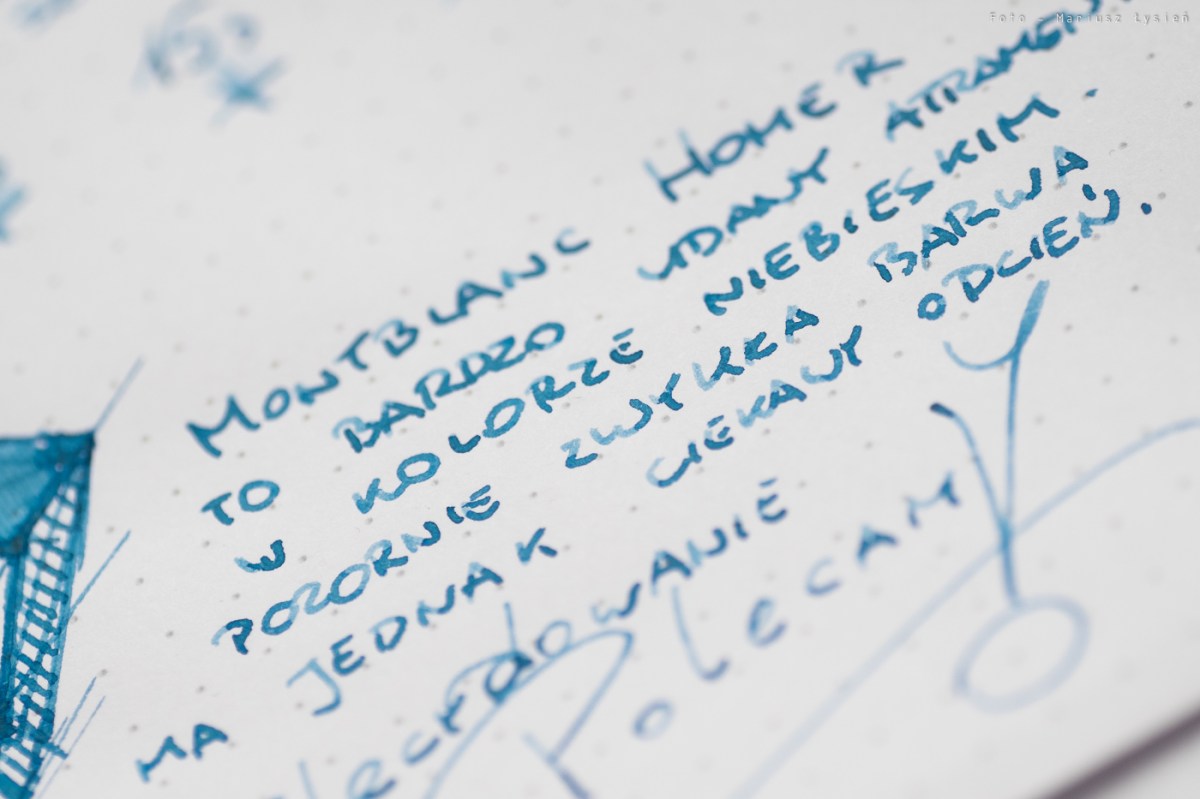 Foto - Mariusz Łysień
MONTBLANC HOMER
TO BARDZO UDANY ATRAMEN
W KOLORZE NIEBIESKIM.
POZORNIE ZWYKŁA BARWA
MA JEDNAK CIEKAWY ODCIEŃ.
POLECAMY